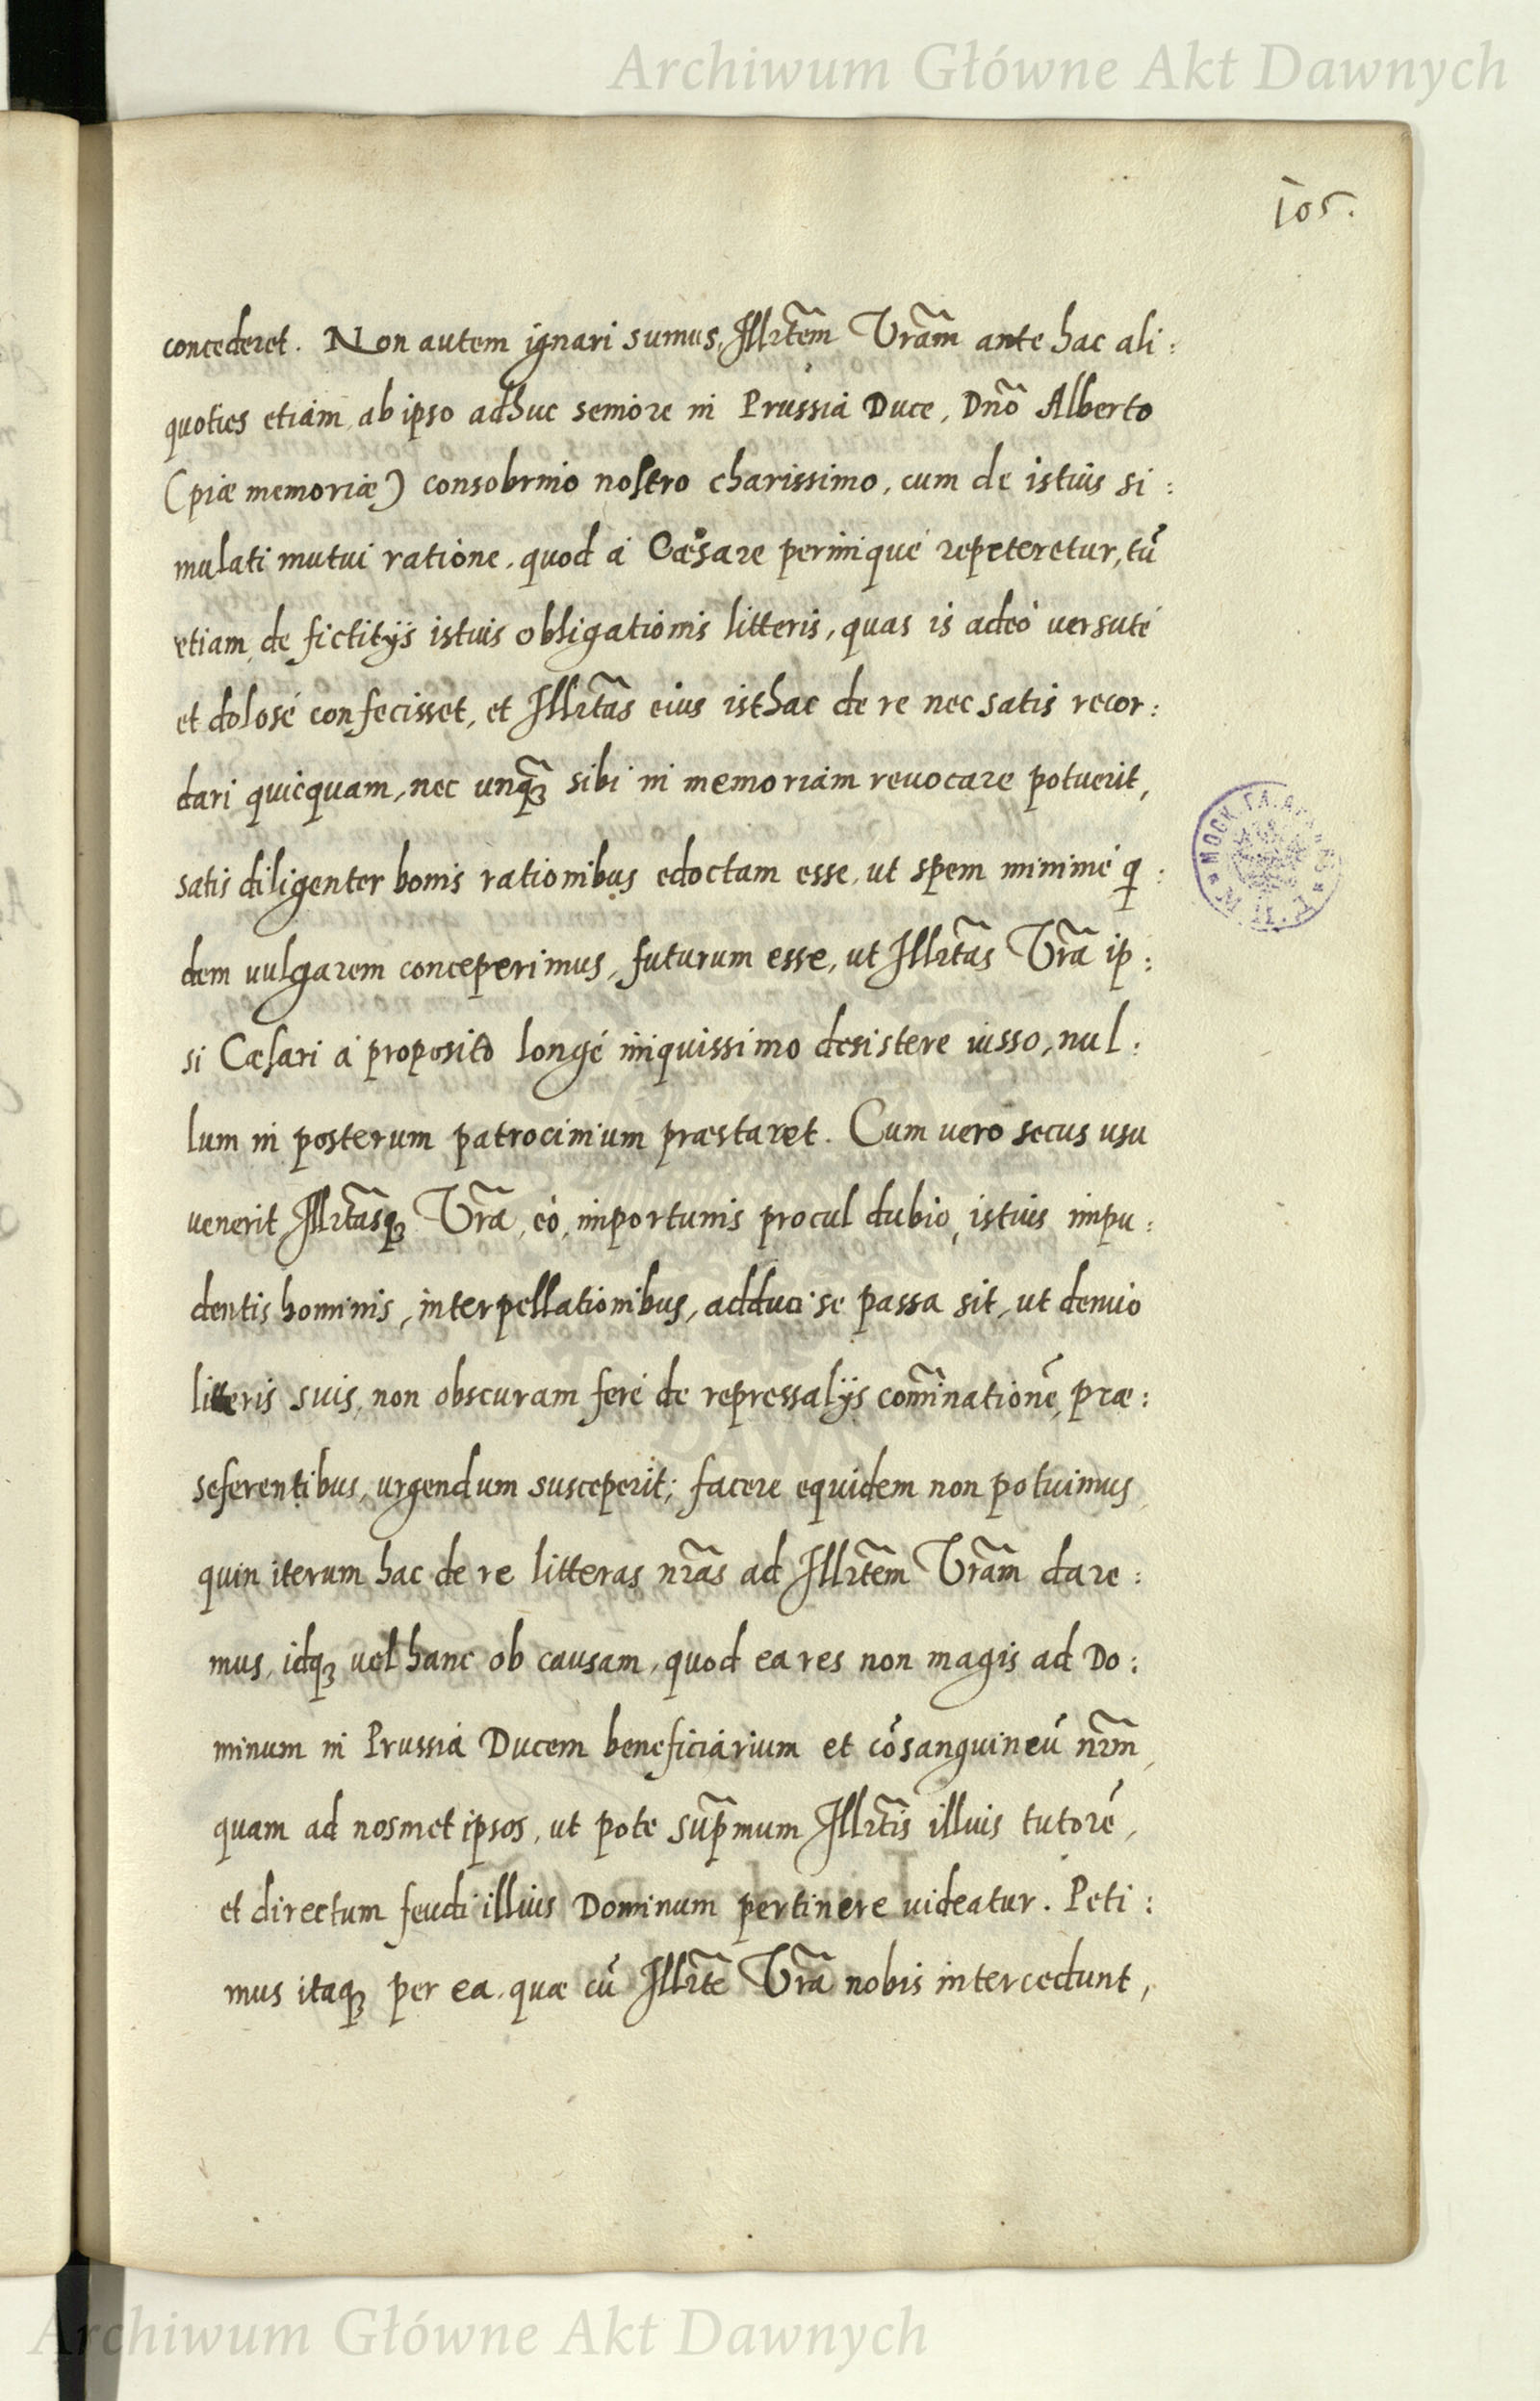 Archiwum Główne Akt Dawnych
105.
concederet. Non autem ignari sumus, Illrt̃em Vr̃am ante hac ali:
quoties etiam, ab ipso adhuc seniore in Prussia Duce, Dnõ Alberto
(piæ memoriæ) consobrino nostro charissimo, cum de istius si:
mulati mutui ratione, quod à Cæsare perinique repeteretur, tū
etiam, de fictitijs istius obligationis litteris, quas is adeò versutè
et dolosè confecisset, et Illrt̃as eius isthac de re nec satis recor:
dari quicquam, nec unq̃ꝫ sibi in memoriam revocare potuerit,
satis diligenter bonis rationibus edoctam esse, ut spem minimè q̨:
dem vulgarem conceperimus, futurum esse, ut Illrt̃as Vr̃a ip:
si Cæsari à proposito longè iniquissimo desistere iusso, nul:
lum in posterum patrocinium præstaret. Cum vero secus usu
venerit Illrt̃asqꝫ Vr̃a, eò, importunis procul dubio, istius impu:
dentis hominis, interpellationibus, adduci se passa sit, ut denuo
litteris suis, non obscuram ferè de repressalijs com̃inationē, præ:
seferentibus, urgendum susceperit; facere equidem non potuimus,
quin iterum hac de re litteras nr̃as ad Illrt̃em Vr̃am dare:
mus, idqꝫ vel hanc ob causam, quod ea res non magis ad Do:
minum in Prussia Ducem beneficiarium et cōsanguineū nr̃m,
quam ad nosmet ipsos, ut pote sup̃mum Illrt̃is illius tutorē,
et directum feudi illius Dominum pertinere videatur. Peti:
mus itaqꝫ per ea, quæ cū Illrt̃e Vr̃a nobis intercedunt,
Archiwum Główne Akt Dawnych